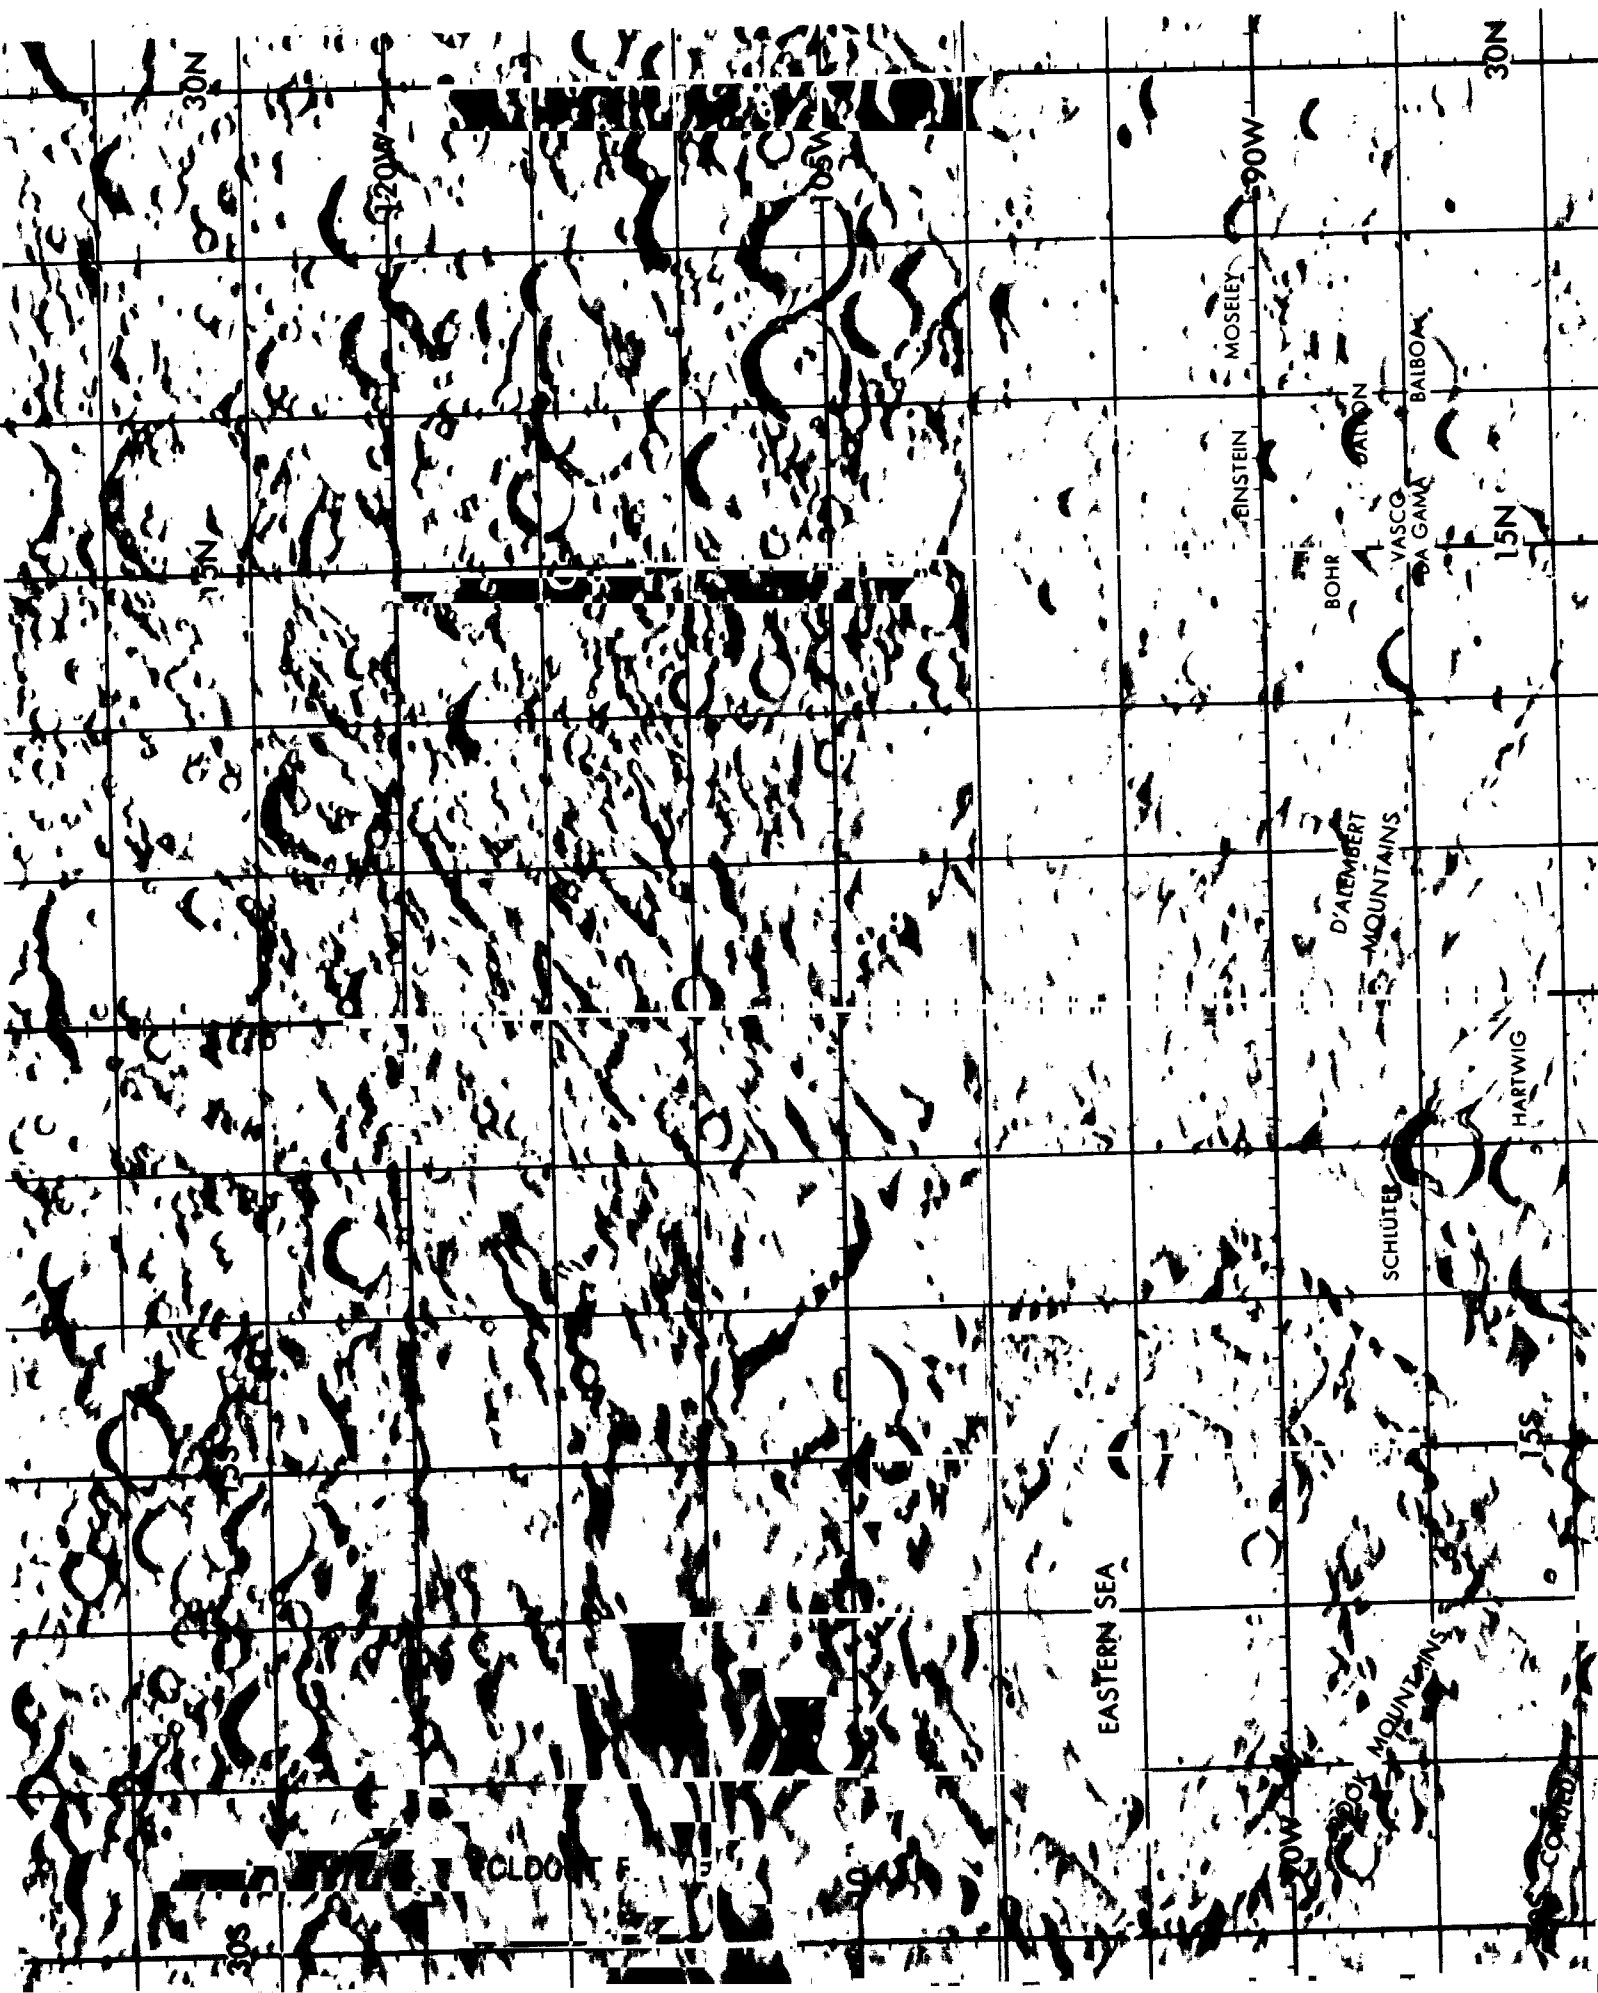 30N
30N
120W
105W
90W
MOSELEY
BALBOA
DALTON
EINSTEIN
VASCO
DA GAMA
15N
15N
BOHR
D'ALEMBERT
MOUNTAINS
HARTWIG
SCHLÜTER
15S
15S
EASTERN SEA
MOUNTAINS
90W
30S